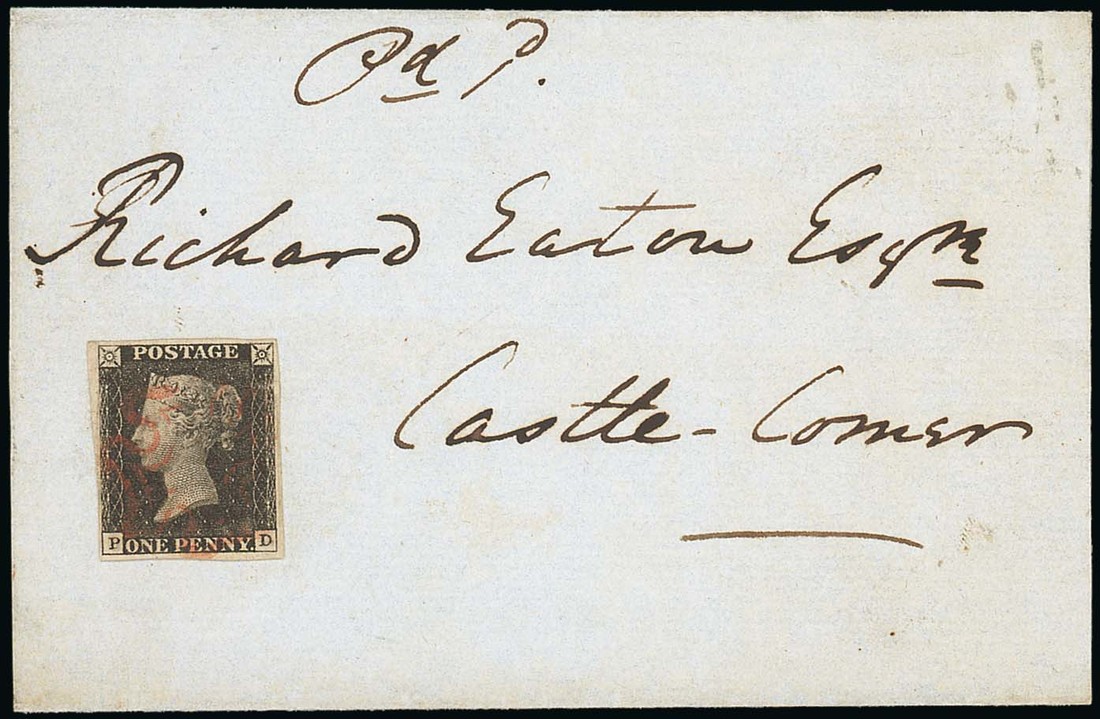 Pd P.
Richard Eaton Esqre
Castle-Comer
POSTAGE
P ONE PENNY. D